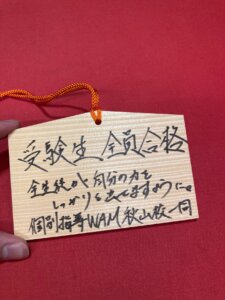 受験生、全員合格
全生徒が自分の力を
しっかりと出せますように。
個別指導WAM秋山校一同